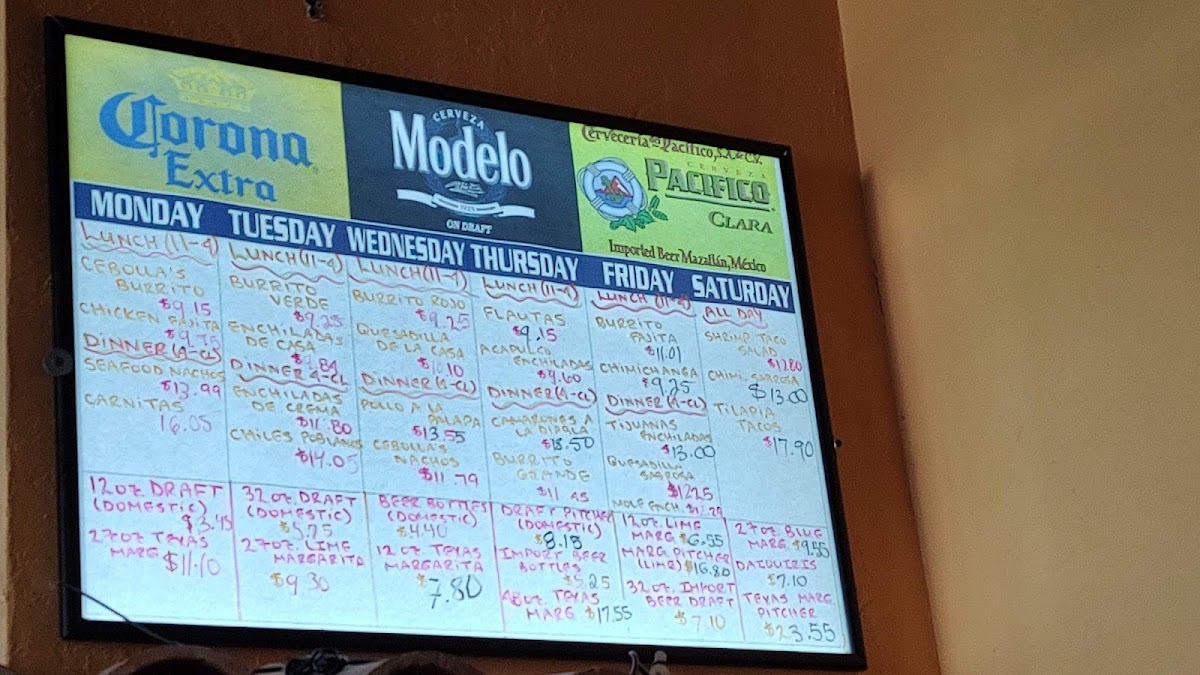 Corona
Extra
CERVEZA
Modelo
ON DRAFT
Cervecería del Pacífico, S.A. de C.V.
CERVEZA
PACIFICO
CLARA
Imported Beer Mazatlán, México
MONDAY
LUNCH (11-4)
CEBOLLA'S
BURRITO
$9.15
CHICKEN FAJITA
$9.75
DINNER (4-CL)
SEAFOOD NACHOS
$13.99
CARNITAS
16.05
12oz. DRAFT
(DOMESTIC)
$3.45
27oz TEXAS
MARG $11.10
TUESDAY
LUNCH (11-4)
BURRITO
VERDE
$9.25
ENCHILADAS
DE CASA
$9.84
DINNER 4-CL
ENCHILADAS
DE CREMA
$11.80
CHILES POBLANOS
$14.05
32oz. DRAFT
(DOMESTIC)
$5.75
27oz. LIME
MARGARITA
$9.30
WEDNESDAY
LUNCH (11-4)
BURRITO ROJO
$9.25
QUESADILLA
DE LA CASA
$10.10
DINNER (4-CL)
POLLO A LA
PALAPA
$13.55
CEBOLLA'S
NACHOS
$11.79
BEER BOTTLES
(DOMESTIC)
$4.40
12oz. TEXAS
MARGARITA
$7.80
THURSDAY
LUNCH (11-4)
FLAUTAS
$9.15
ACAPULCO
ENCHILADAS
$9.60
DINNER (4-CL)
CAMARONES A
LA DIABLA
BURRITO
GRANDE
$11.45
DRAFT PITCHER
(DOMESTIC)
$8.18
IMPORT BEER
BOTTLES
$5.25
48oz. TEXAS
MARG $17.55
FRIDAY
LUNCH (11-4)
BURRITO
FAJITA
$11.01
CHIMICHANGA
$9.25
DINNER (4-CL)
TIJUANAS
ENCHILADAS
$13.00
QUESADILLA
SABROSA
$12.25
MOLE ENCH. $12.29
12oz. LIME
MARG $6.55
MARG PITCHER
(LIME) $16.80
32oz. IMPORT
BEER DRAFT
$7.10
SATURDAY
ALL DAY
SHRIMP TACO
SALAD
$12.80
CHIMI. SABROSA
$13.00
TILAPIA
TACOS
$17.90
27oz BLUE
MARG $9.55
DAIQUIRIS
$7.10
TEXAS MARG
PITCHER
$23.55